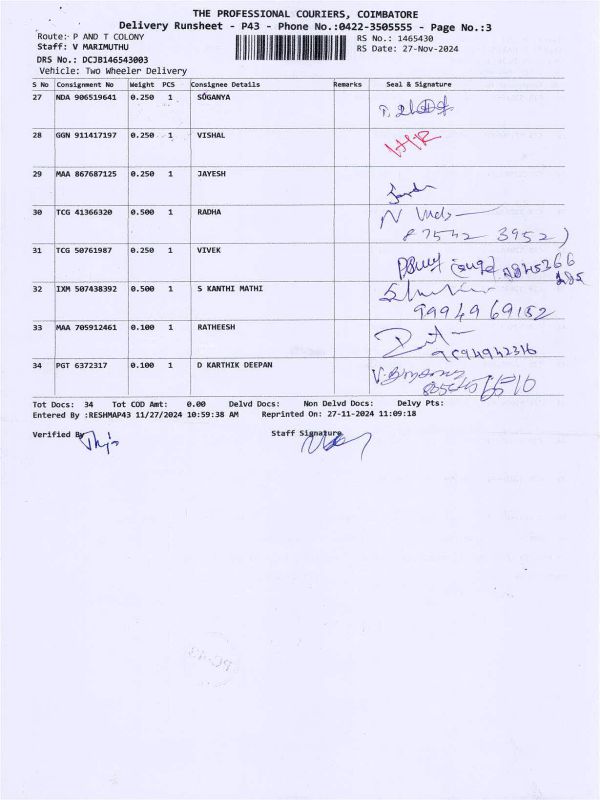 THE PROFESSIONAL COURIERS, COIMBATORE
Delivery Runsheet - P43 - Phone No.:0422-3505555 - Page No.:3
Route: P AND T COLONY RS No.: 1465430
Staff: V MARIMUTHU RS Date: 27-Nov-2024
DRS No.: DCJB146543003
Vehicle: Two Wheeler Delivery
S No Consignment No Weight PCS Consignee Details Remarks Seal & Signature
27 NDA 906519641 0.250 1 SOGANYA
28 GGN 911417197 0.250 1 VISHAL
29 MAA 867687125 0.250 1 JAYESH
30 TCG 41366320 0.500 1 RADHA
87542 3952)
31 TCG 50761987 0.250 1 VIVEK
32 IXM 507438392 0.500 1 S KANTHI MATHI
99949 69152
33 MAA 705912461 0.100 1 RATHEESH
34 PGT 6372317 0.100 1 D KARTHIK DEEPAN
Tot Docs: 34 Tot COD Amt: 0.00 Delvd Docs: Non Delvd Docs: Delvy Pts:
Entered By :RESHMAP43 11/27/2024 10:59:38 AM Reprinted On: 27-11-2024 11:09:18
Verified By Staff Signature